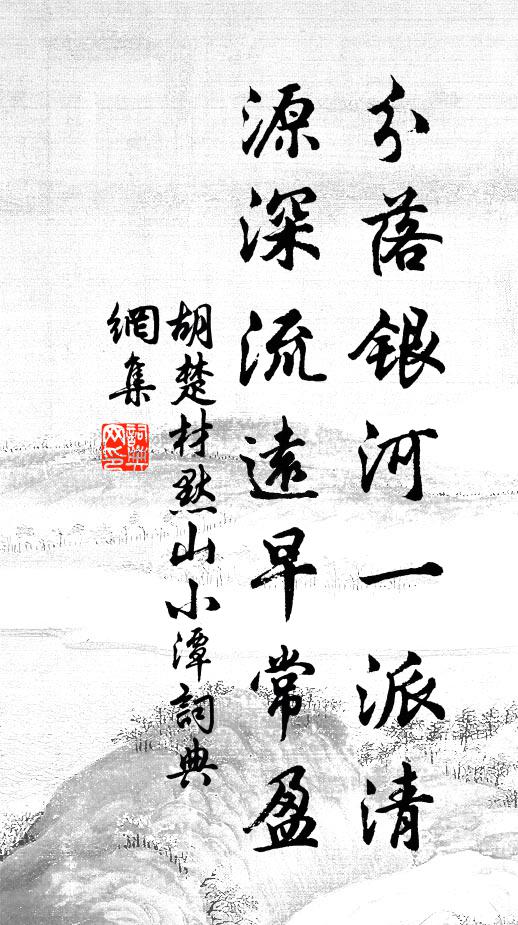 分落銀河一派清
源深流遠早常盈
胡楚材黙山小潭詞典
網集